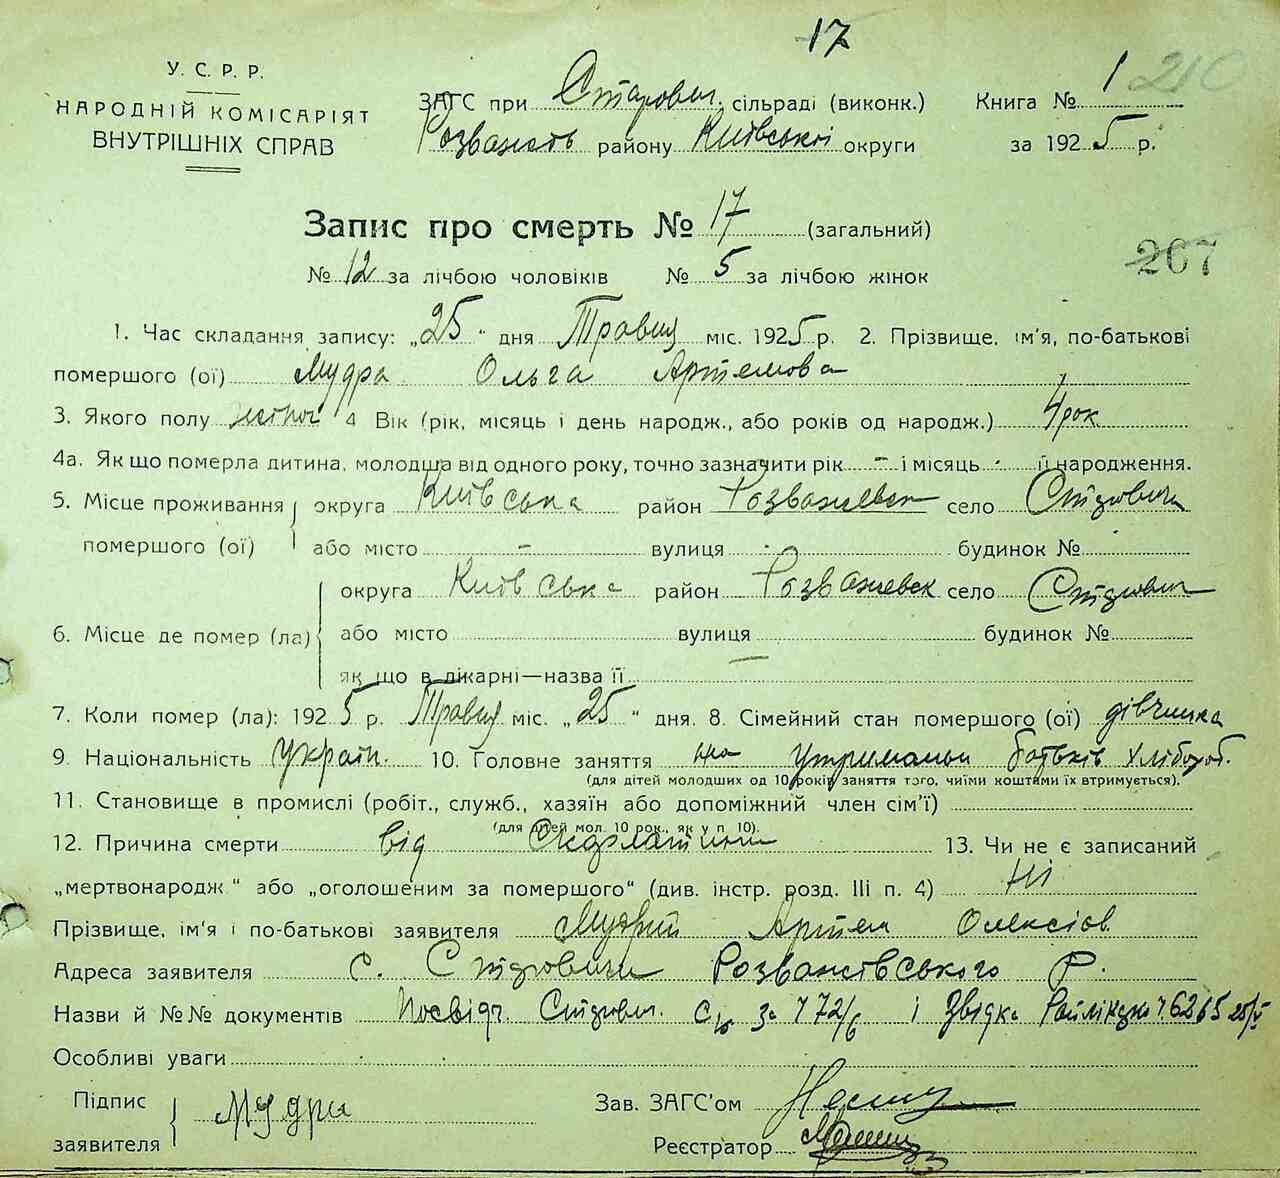 17
У. С. Р. Р.
НАРОДНІЙ КОМІСАРІЯТ
ВНУТРІШНІХ СПРАВ
ЗАГС при сільраді (виконк.)
району Київської округи
Книга № 1 210
за 1925 р.
Запис про смерть № 17 (загальний)
№ 12 за лічбою чоловіків № 5 за лічбою жінок
267
1. Час складання запису: „25" дня Травня міс. 1925 р. 2. Прізвище, ім'я, по-батькові
помершого (ої) Мудра Ольга Артемова
3. Якого полу жіноч 4 Вік (рік, місяць і день народж., або років од народж.) 4 рок
4а. Як що померла дитина, молодща від одного року, точно зазначити рік - і місяць - її народження.
5. Місце проживання округа Київська район Розважевск село
помершого (ої) або місто - вулиця - будинок №
округа Київська район Розважевск село
6. Місце де помер (ла) або місто вулиця будинок №
як що в лікарні—назва її —
7. Коли помер (ла): 1925 р. Травня міс. „25" дня. 8. Сімейний стан помершого (ої) дівчинка
9. Національність україн. 10. Головне заняття на утриманьи батьків хлібороб.
(для дітей молодших од 10 років заняття того, чиїми коштами їх втримується).
11. Становище в промислі (робіт., служб., хазяїн або допоміжний член сім'ї)
(для дітей мол. 10 рок., як у п. 10).
12. Причина смерти від Скарлатини 13. Чи не є записаний
„мертвонародж." або „оголошеним за помершого" (див. інстр. розд. III п. 4) Ні
Прізвище, ім'я і по-батькові заявителя Мудрий Артем Олексіов.
Адреса заявителя с. Розважівського Р.
Назви й №№ документів Посвідч. за 772/6 і Звідка
Особливі уваги
Підпис Мудри Зав. ЗАГС'ом
заявителя Реєстратор